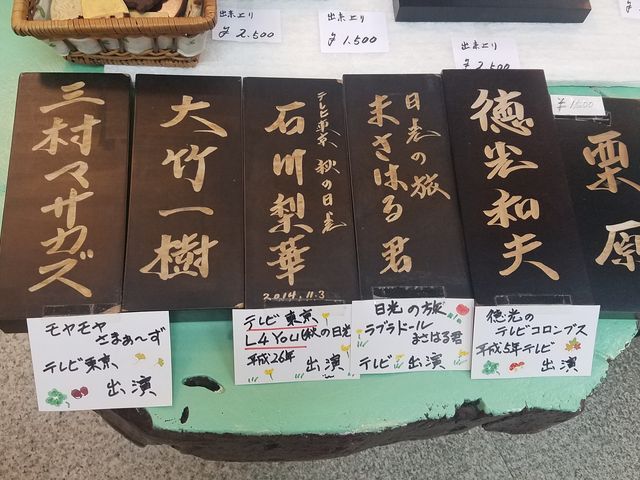 出来上り
¥2.500
出来上り
¥1.500
出来上り
¥2.500
¥1500
三村マサカズ
大竹一樹
テレビ東京 秋の日光
石川梨華
2014.11.3
日光の旅
まさはる君
徳光和夫
栗原
モヤモヤ
さまぁ〜ず
テレビ東京
出演
テレビ東京
L4YOU 秋の日光
平成26年
出演
日光の旅
ラブラドール
まさはる君
テレビ 出演
徳光の
テレビコロンブス
平成5年テレビ
出演